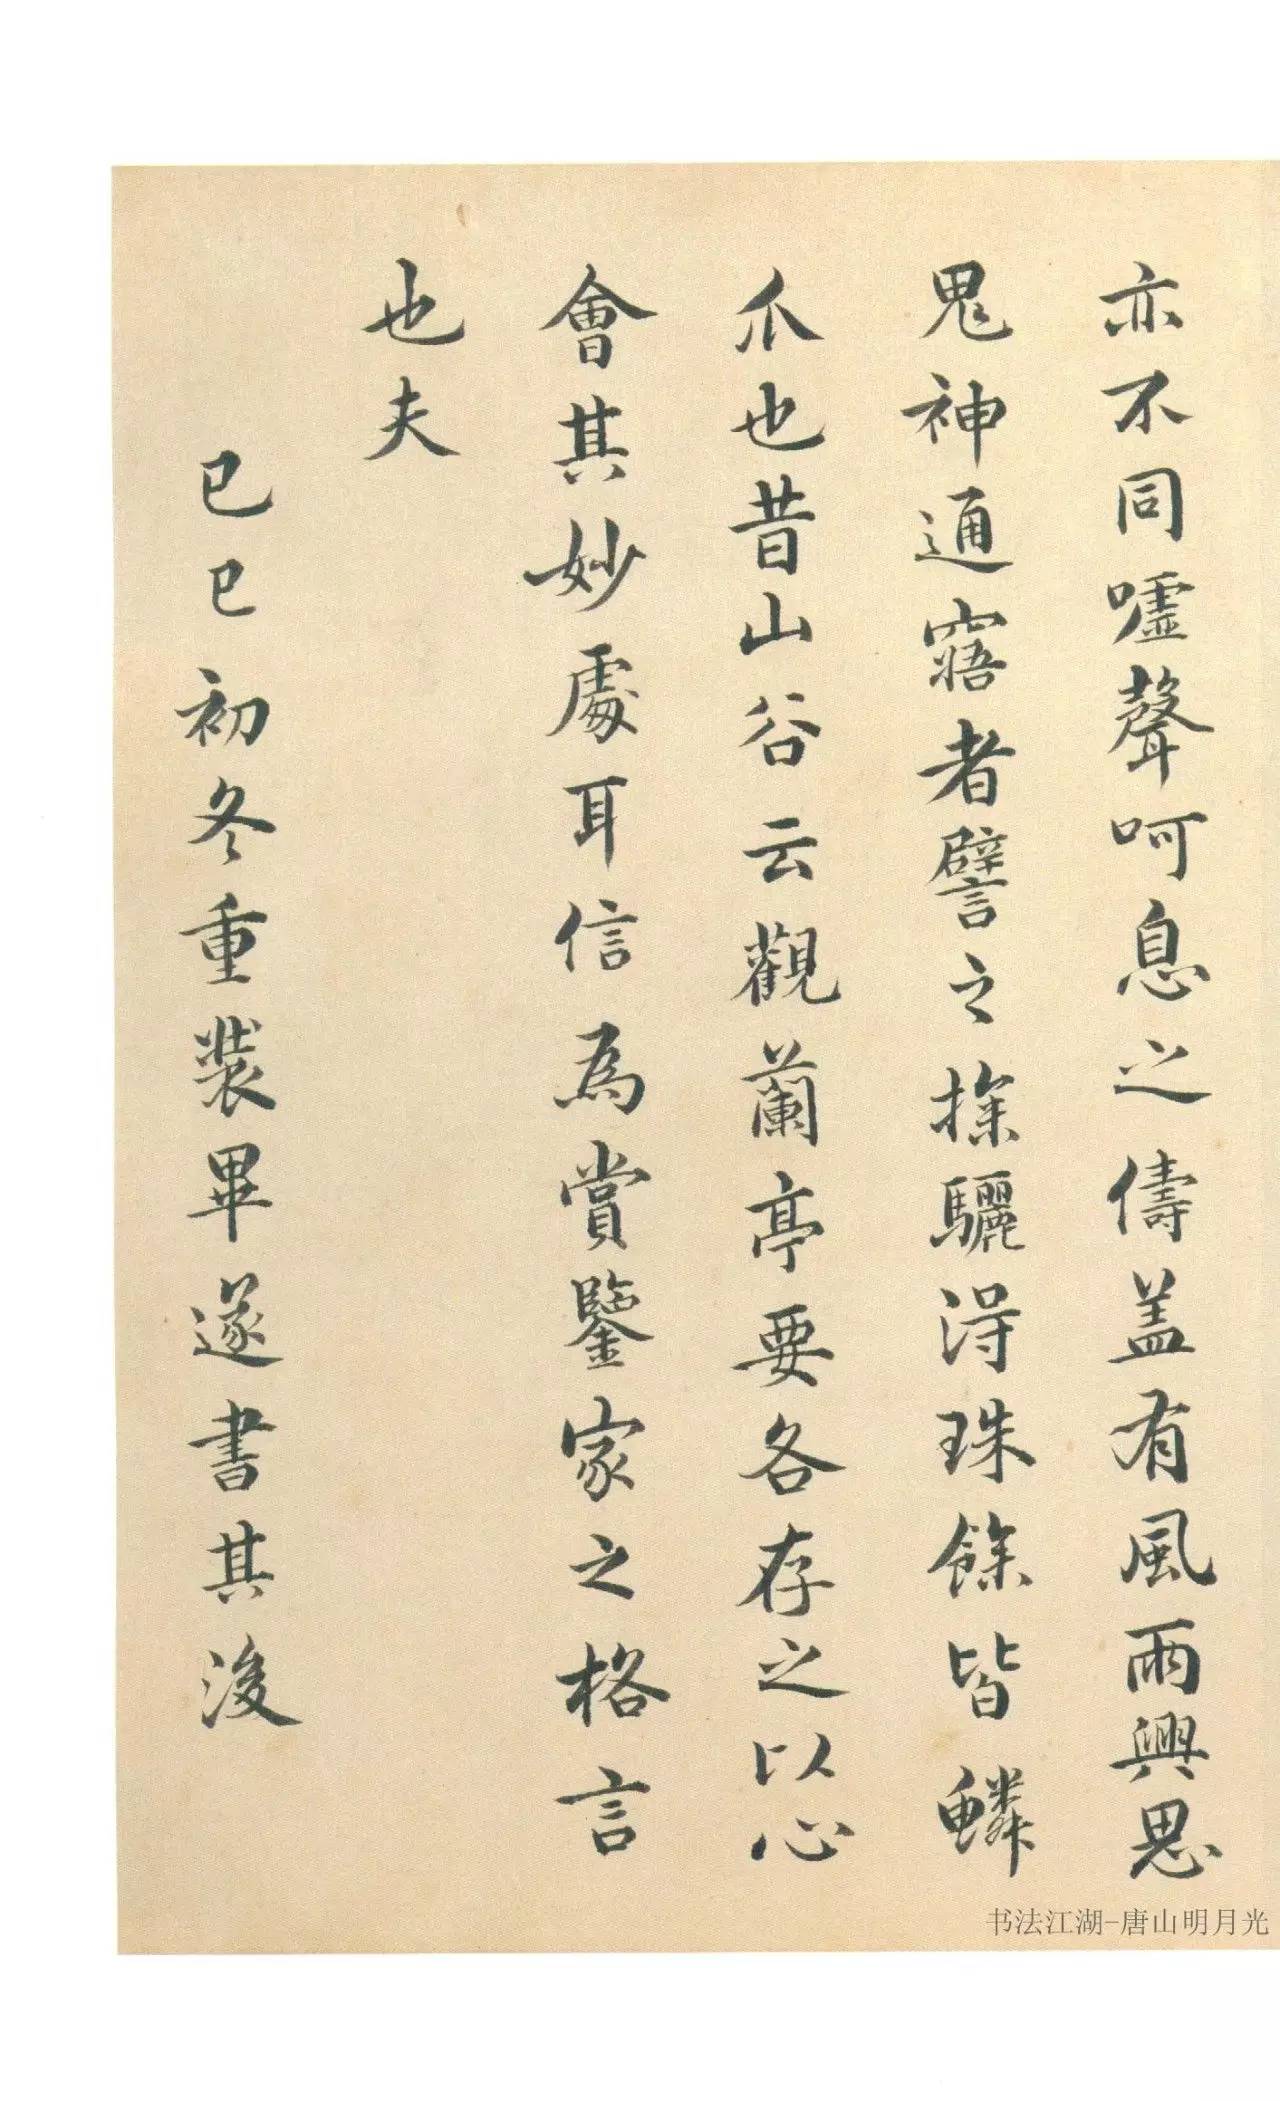 亦不同嘘聲呵息之儔盖有風雨興思
鬼神通寤者譬之探驪得珠餘皆鱗
爪也昔山谷云觀蘭亭要各存之以心
會其妙處耳信為賞鑒家之格言
也夫
己巳初冬重裝畢遂書其後
书法江湖-唐山明月光